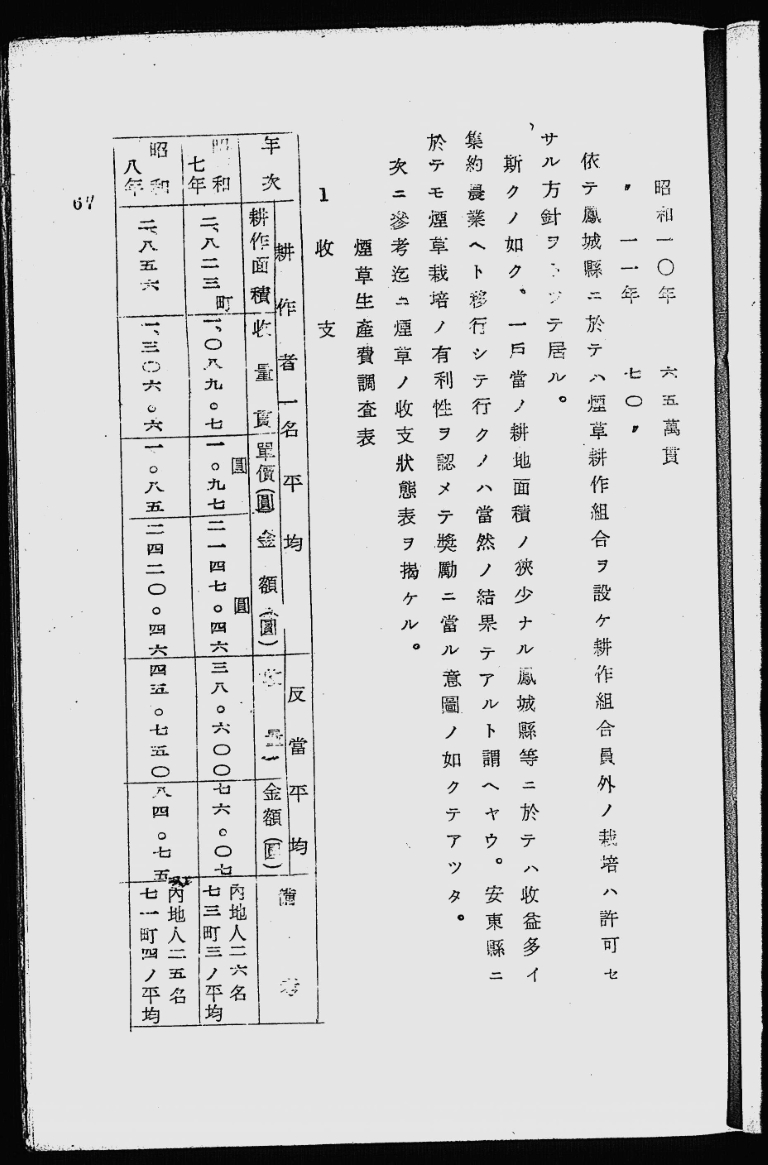 昭和一〇年　六五萬貫
〃 一一年　七〇〃
依テ鳳城縣ニ於テハ煙草耕作組合ヲ設ケ耕作組合員外ノ栽培ハ許可セ
サル方針ヲトツテ居ル。
斯クノ如ク、一戸當ノ耕地面積ノ狹少ナル鳳城縣等ニ於テハ收益多イ
集約農業ヘト移行シテ行クノハ當然ノ結果テアルト謂ヘヤウ。安東縣ニ
於テモ煙草栽培ノ有利性ヲ認メテ奬勵ニ當ル意圖ノ如クテアツタ。
次ニ參考迄ニ煙草ノ收支狀態表ヲ揭ケル。
煙草生產費調查表
1 收支
耕作者一名平均　反當平均
年次　耕作面積　收量貫　單價(圓)　金額(圓)　收量　金額(圓)　備考
昭和七年　二、八二三町　一、〇八九。七　一。九七圓　二一四七。四六圓　三八。六〇〇　七六。〇七　內地人二六名
七三町三ノ平均
昭和八年　二、八五六　一、三〇六。六　一。八五　二四二〇。四六　四五。七五〇　八四。七五　內地人二五名
七一町四ノ平均
67